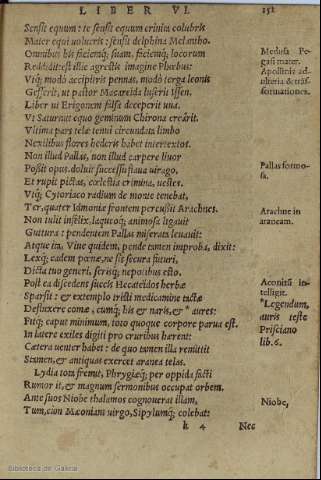 LIBER VI.
151
Sensit equum: te sensit equum crinita colubris
Mater equi uolucris: sensit delphina Melantho.
Omnibus his faciemq́; suam, faciemq́; locorum
Reddidit: est illic agrestis imagine Phœbus:
Vtq́; modò accipitris pennas, modò terga leonis
Gesserit, ut pastor Macareida luserit Issen.
Liber ut Erigonen falsa deceperit uua.
Vt Saturnus equo geminum Chirona creârit.
Vltima pars telæ tenui circundata limbo
Nexilibus flores hederis habet intertextos.
Non illud Pallas, non illud carpere liuor
Possit opus. doluit successu flaua uirago.
Et rupit pictas, cœlestia crimina, uestes.
Vtq́; Cytoriaco radium de monte tenebat,
Ter, quater Idmoniæ frontem percussit Arachnes.
Non tulit infelix, laqueoq́; animosa ligauit
Guttura: pendentem Pallas miserata leuauit:
Atque ita, Viue quidem, pende tamen improba, dixit:
Lexq́; eadem pœnæ, ne sis secura futuri,
Dicta tuo generi, serisq́; nepotibus esto.
Post ea discedens succis Hecateidos herbæ
Sparsit: & extemplo tristi medicamine tactæ
Defluxere comæ, cumq́; his & naris, & * aures:
Fitq́; caput minimum, toto quoque corpore parua est.
In latere exiles digiti pro cruribus hærent:
Cætera uenter habet: de quo tamen illa remittit
Stamen, & antiquas exercet aranea telas.
Lydia tota fremit, Phrygiæq́; per oppida facti
Rumor it, & magnum sermonibus occupat orbem.
Ante suos Niobe thalamos cognouerat illam,
Tum, cùm Mæoniam uirgo, Sipylumq́; colebat:
k 4
Nec
Medusa Pegasi mater.
Apollinis adulteria & trãsformationes.
Pallas formosa.
Arachne in araneam.
Aconitũ intelligit.
*Legendum,
aures teste
Prisciano
lib. 6.
Niobe,
Biblioteca de Galicia